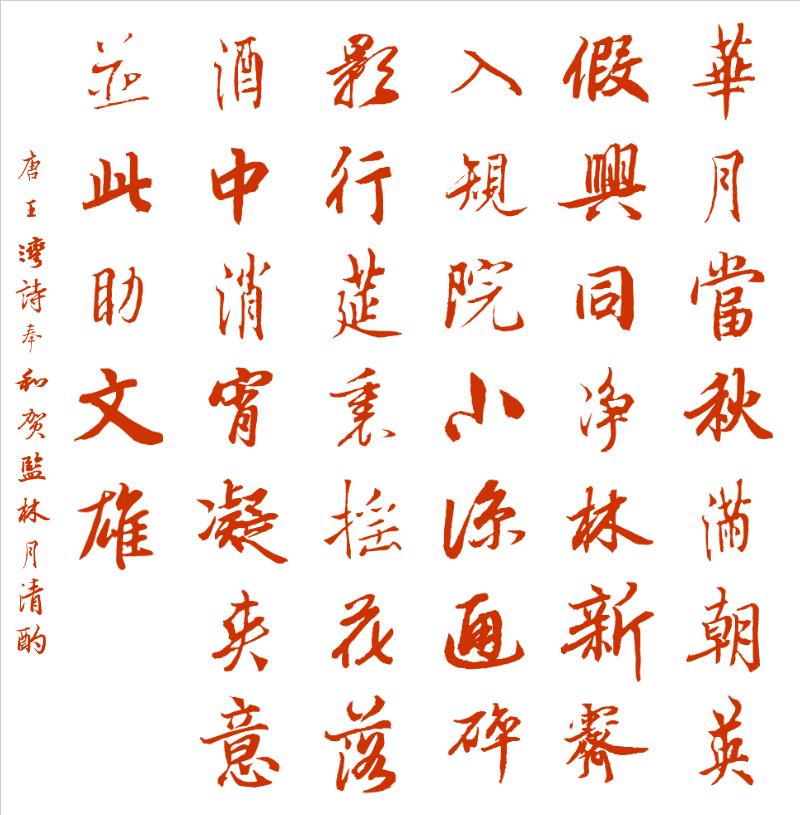 華月當秋滿朝英
假興同净林新霽
入規院小涼通碎
影行筵裏摇花落
酒中消宵凝爽意
並此助文雄
唐王灣詩奉和贺監林月清酌